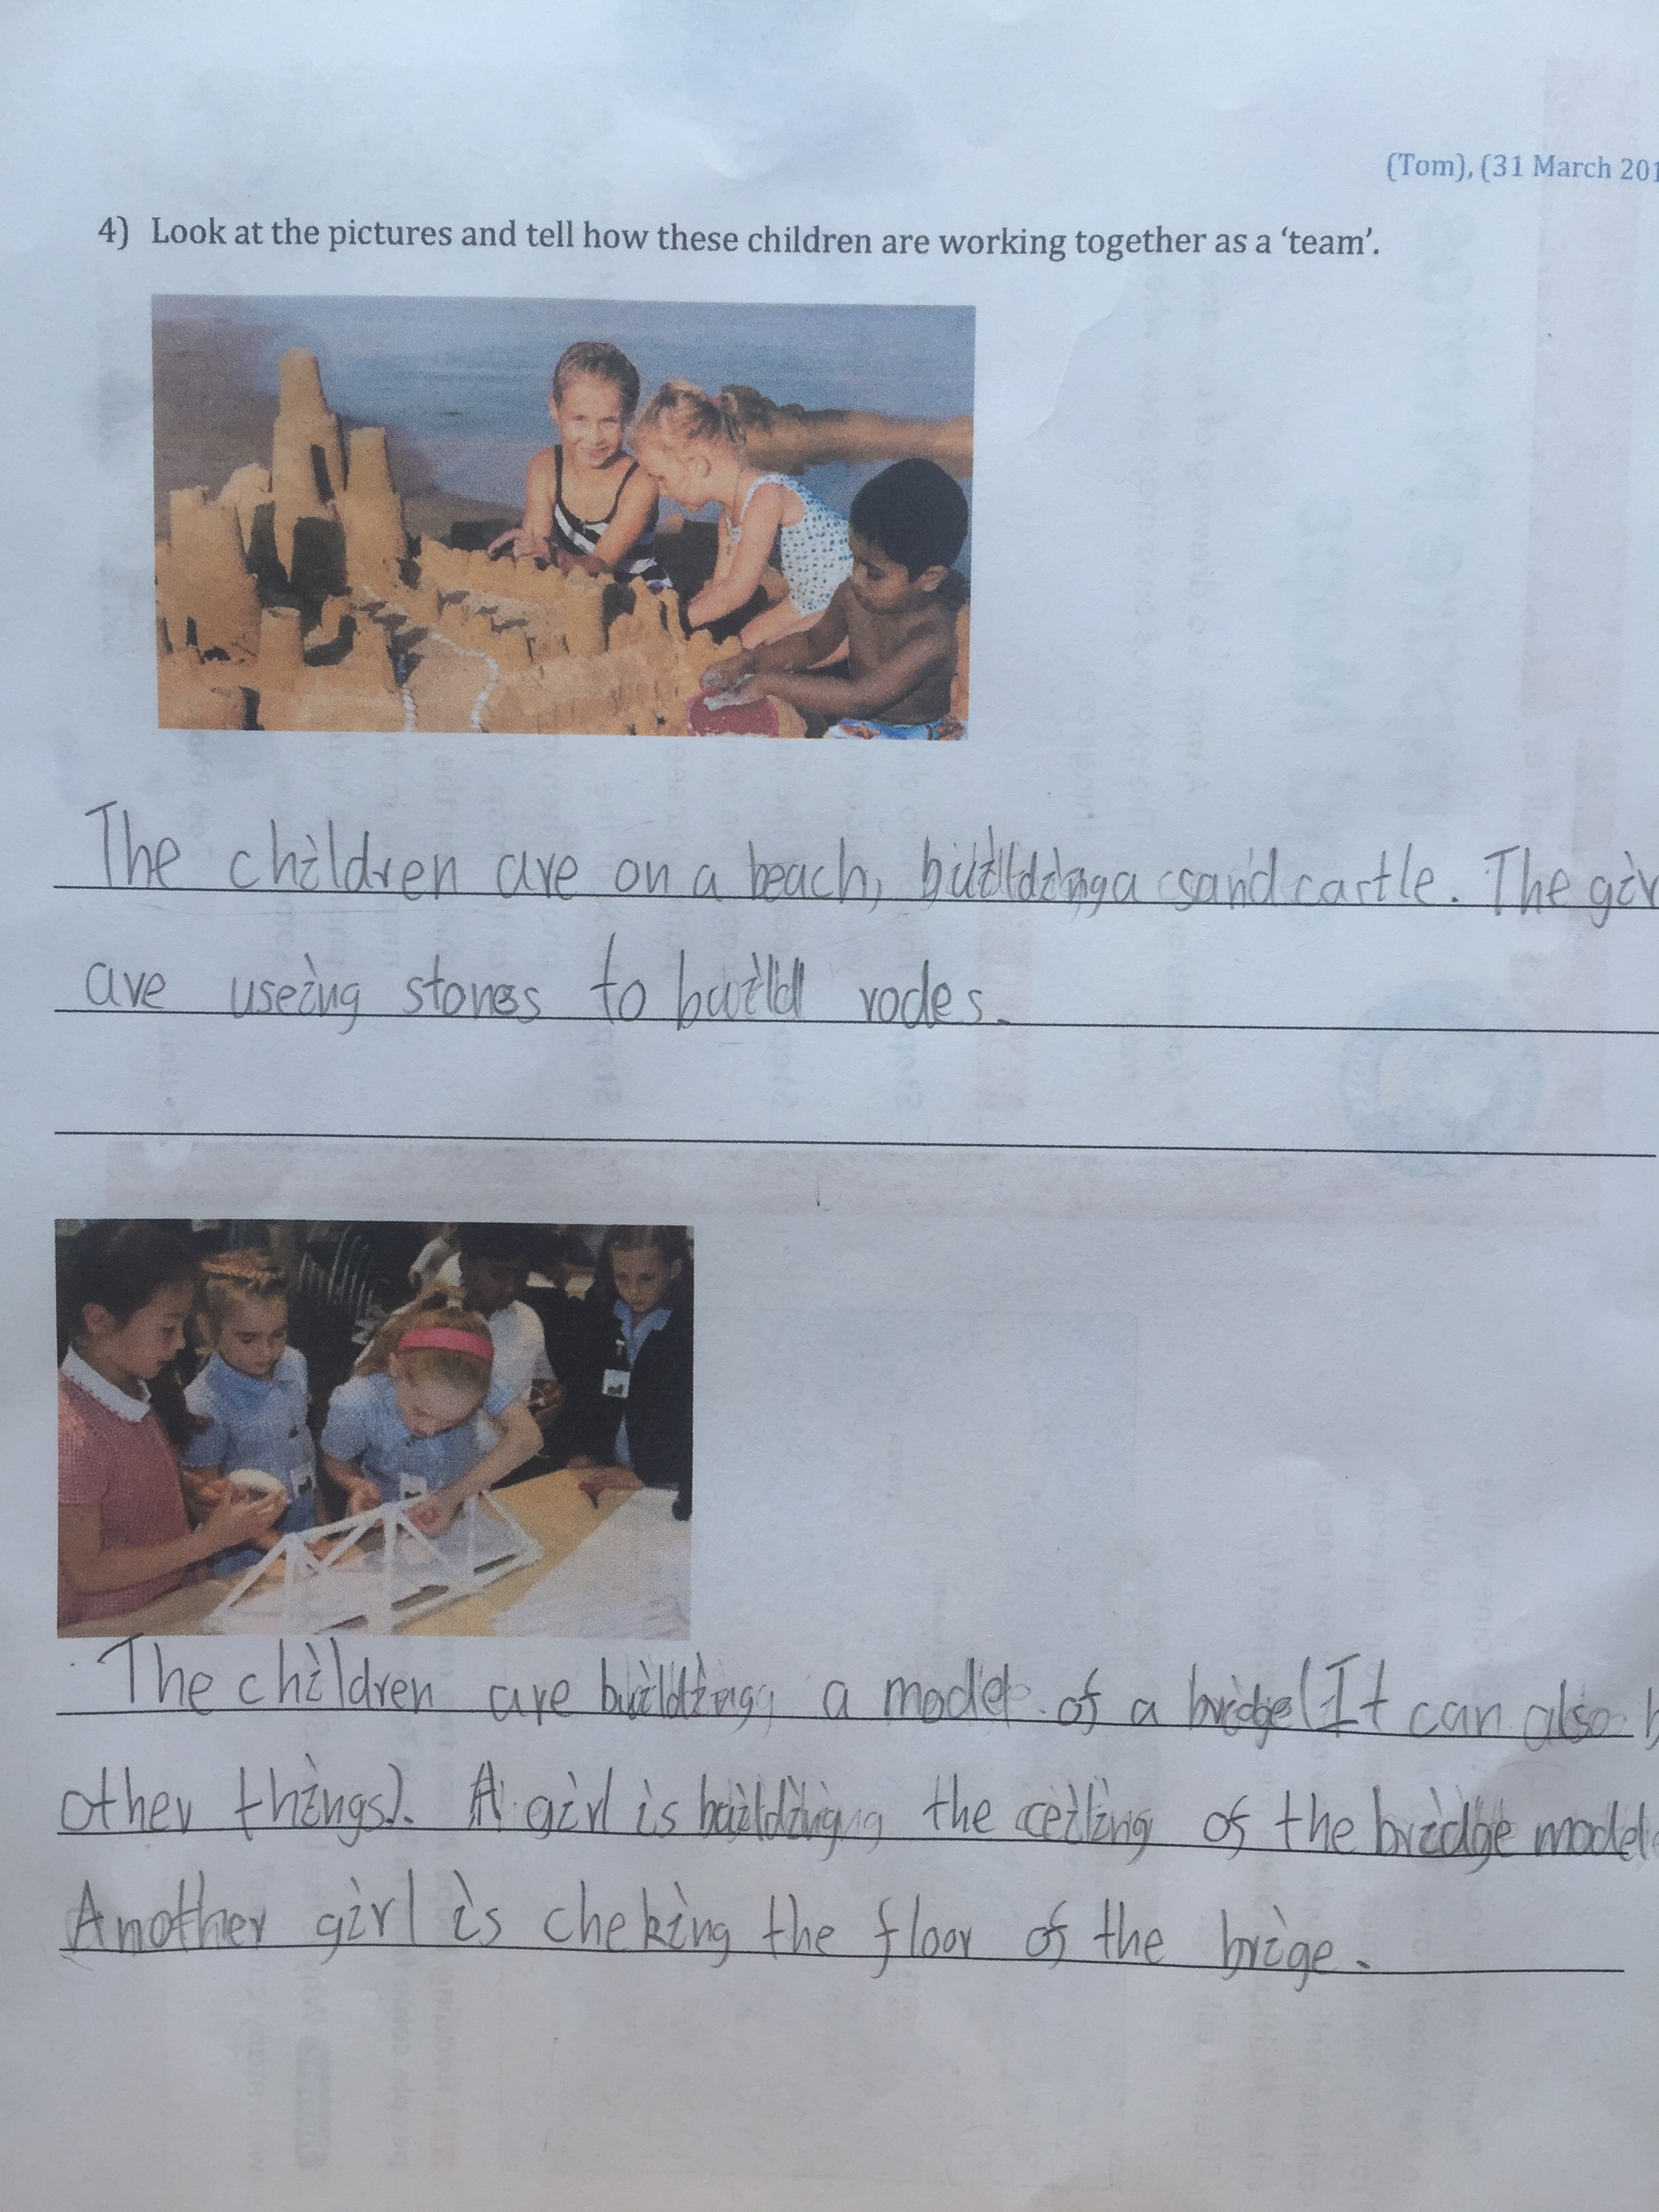 (Tom), (31 March 201
4) Look at the pictures and tell how these children are working together as a ‘team’.
The children are on a beach, building a sand castle. The gir
are useing stones to build rodes.
The children are building a model of a bridge (It can also b
other things). A girl is building the ceiling of the bridge model
Another girl is cheking the floor of the brige.